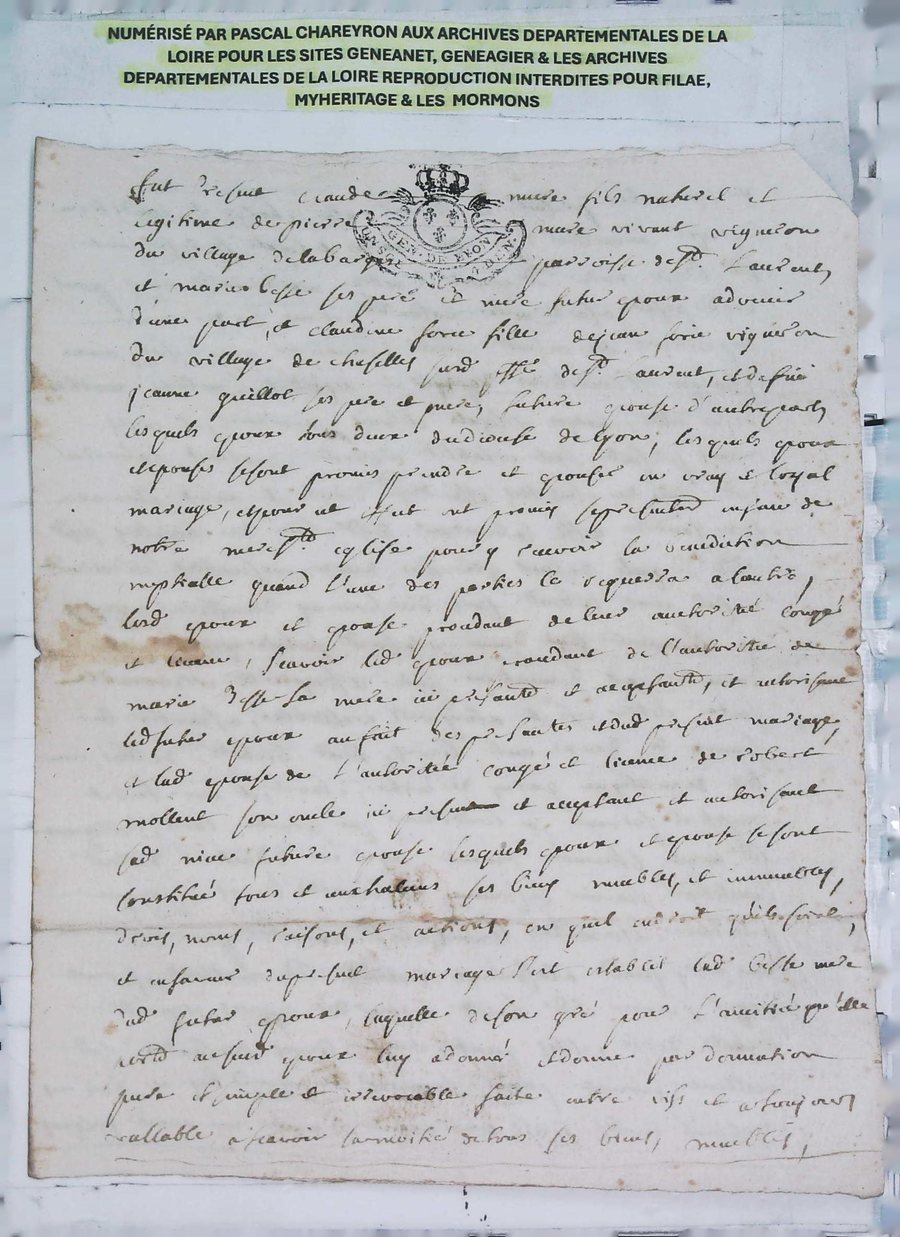 NUMÉRISÉ PAR PASCAL CHAREYRON AUX ARCHIVES DEPARTEMENTALES DE LA
LOIRE POUR LES SITES GENEANET, GENEAGIER & LES ARCHIVES
DEPARTEMENTALES DE LA LOIRE REPRODUCTION INTERDITES POUR FILAE,
MYHERITAGE & LES MORMONS
fut present claude mure fils naturel et
legitime de pierre mure vivant vigneron
GEN. DE LYON
du village delabarge parroisse de st Laurent,
et marie besse ses pere et mere futur epoux advenir
d'une part, et claudine forie fille dejean forie vigneron
du village de chefelles susd psse de st aurent, et defue
jeanne guillot ses pere et mere, future epouse d'autrepart,
lesquels epoux tous deux dudiocese de lyon, lesquels epoux
et epouse sesont promis prendre et epouser en vray et loyal
mariage, et pour cet effect ont promis se presenter en face de
notre mere ste eglise pour y recevoir la benediction
nuptialle quand l'une des parties le requerra a lautre,
led epoux et epouse procedant de leur authorité congé
et licence, scavoir led epoux procedant de l'authorité de
marie besse sa mere icy presente et acceptante, et autorisant
led futur epoux au fait des presentes et dud present mariage,
et lad epouse de l'autorité congé et licence de robert
mollent son oncle icy present et acceptant et autorisant
sad niece future epouse lesquels epoux et epouse se sont
constitué tous et un chascuns ses biens meubles, et immeubles,
droits, noms, raisons, et actions, en quel endroit qu'ils soient,
et en faveur du present mariage s'est establie lad besse mere
dud futur epoux, laquelle de son gré pour l'amitié qu'elle
porte audit epoux luy a donné et donne par donnation
pure et simple et irrevocable faite entre vifs et a toujours
vallable a scavoir la moitié de tous ses biens, meubles,